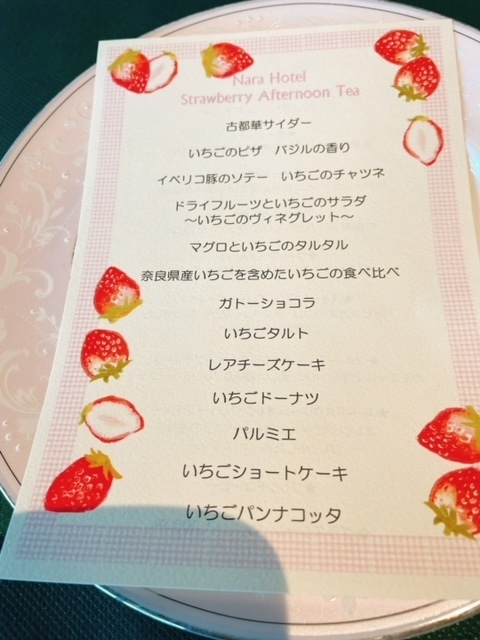 Nara Hotel
Strawberry Afternoon Tea
古都華サイダー
いちごのピザ　バジルの香り
イベリコ豚のソテー　いちごのチャツネ
ドライフルーツといちごのサラダ
～いちごのヴィネグレット～
マグロといちごのタルタル
奈良県産いちごを含めたいちごの食べ比べ
ガトーショコラ
いちごタルト
レアチーズケーキ
いちごドーナツ
パルミエ
いちごショートケーキ
いちごパンナコッタ